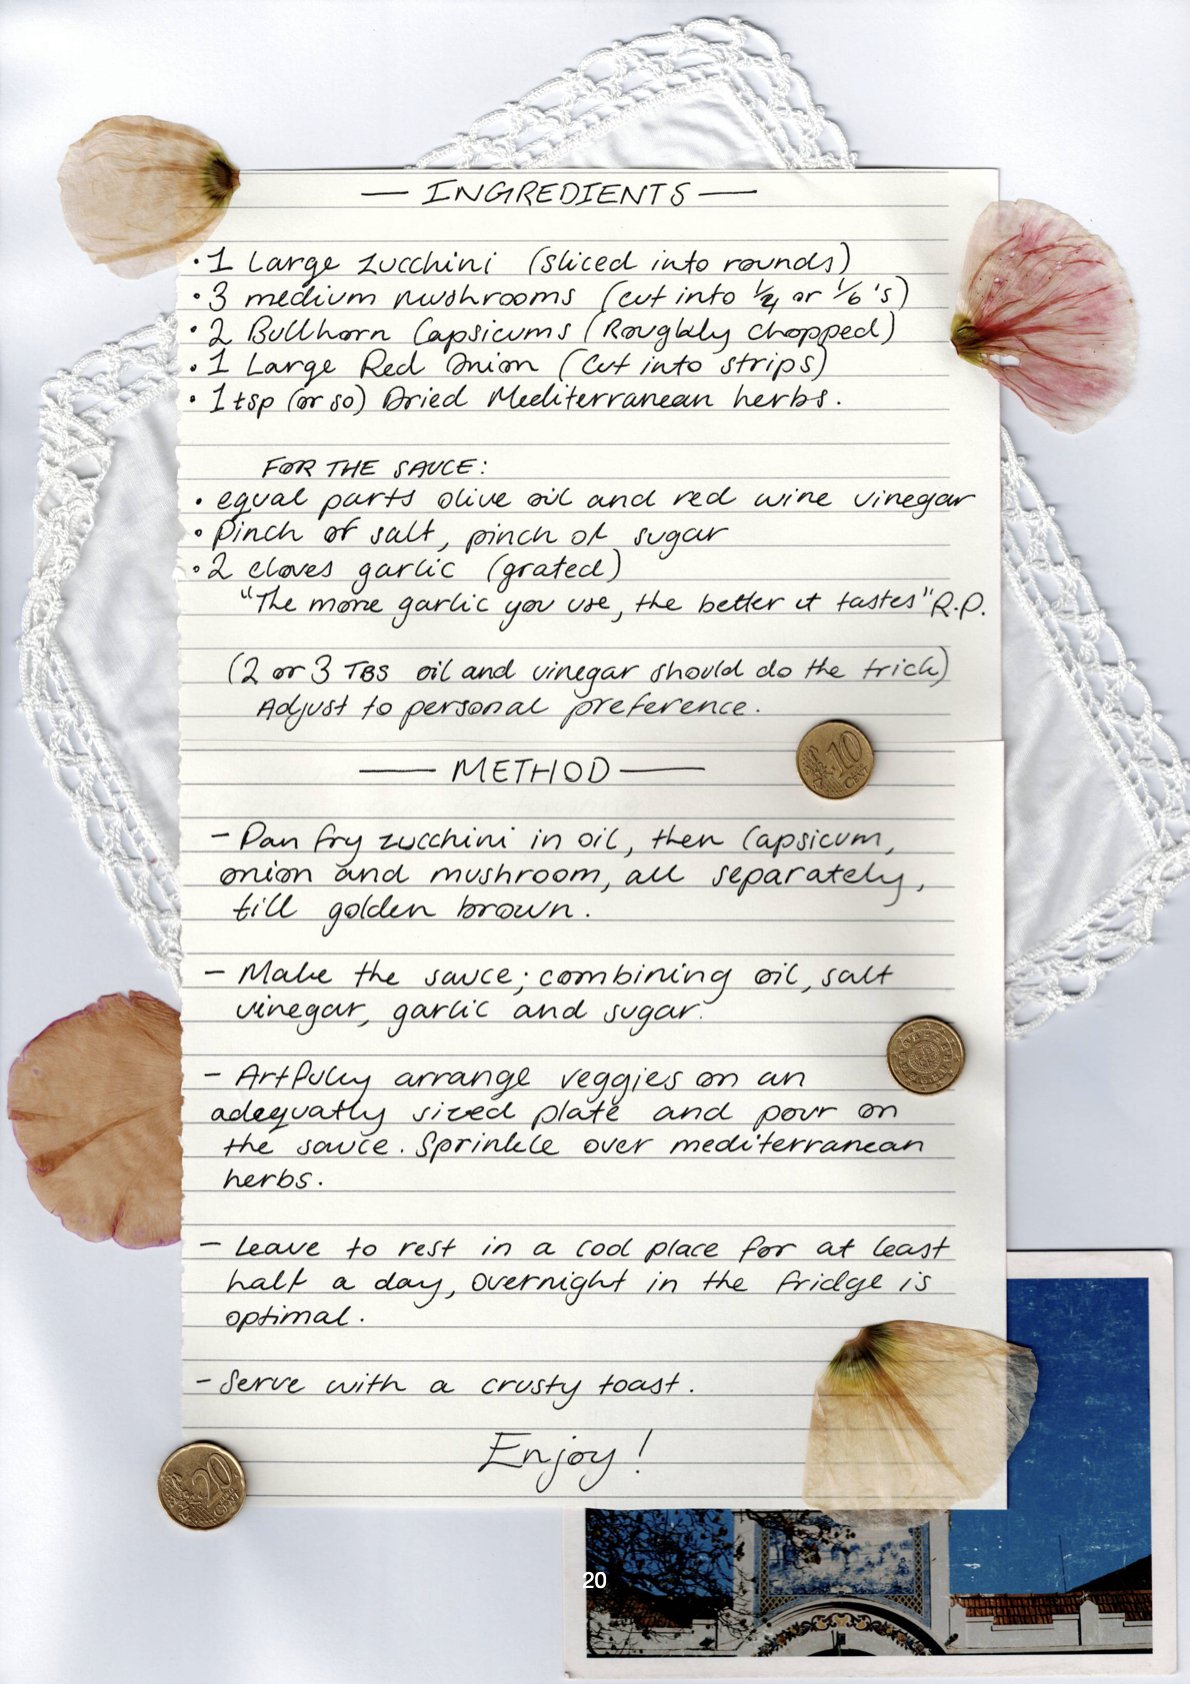 — INGREDIENTS —
• 1 Large zucchini (sliced into rounds)
• 3 medium mushrooms (cut into 1/4 or 1/6's)
• 2 Bullhorn Capsicums (Roughly chopped)
• 1 Large Red Onion (Cut into strips)
• 1 tsp (or so) Dried Mediterranean herbs.
FOR THE SAUCE:
• equal parts olive oil and red wine vinegar
• Pinch of salt, pinch of sugar
• 2 cloves garlic (grated)
"The more garlic you use, the better it tastes" R.P.
(2 or 3 TBS oil and vinegar should do the trick)
Adjust to personal preference.
10
CENT
— METHOD —
- Pan fry zucchini in oil, then Capsicum,
onion and mushroom, all separately,
till golden brown.
- Make the sauce; combining oil, salt
vinegar, garlic and sugar.
- Artfully arrange veggies on an
adequatly sized plate and pour on
the sauce. Sprinkle over mediterranean
herbs.
- Leave to rest in a cool place for at least
half a day, overnight in the fridge is
optimal.
- Serve with a crusty toast.
Enjoy!
20
CENT
20